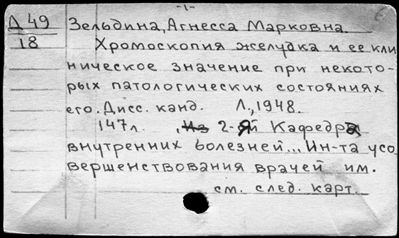 -1-
Д 49
18
Зельдина, Агнесса Марковна.
Хромоскопия желудка и ее кли
ническое значение при некото-
рых патологических состояниях
его. Дисс. канд. Л., 1948.
147л. , Из 2-й Кафедр
внутренних болезней... Ин-та усо
вершенствования врачей им.
см. след. карт.